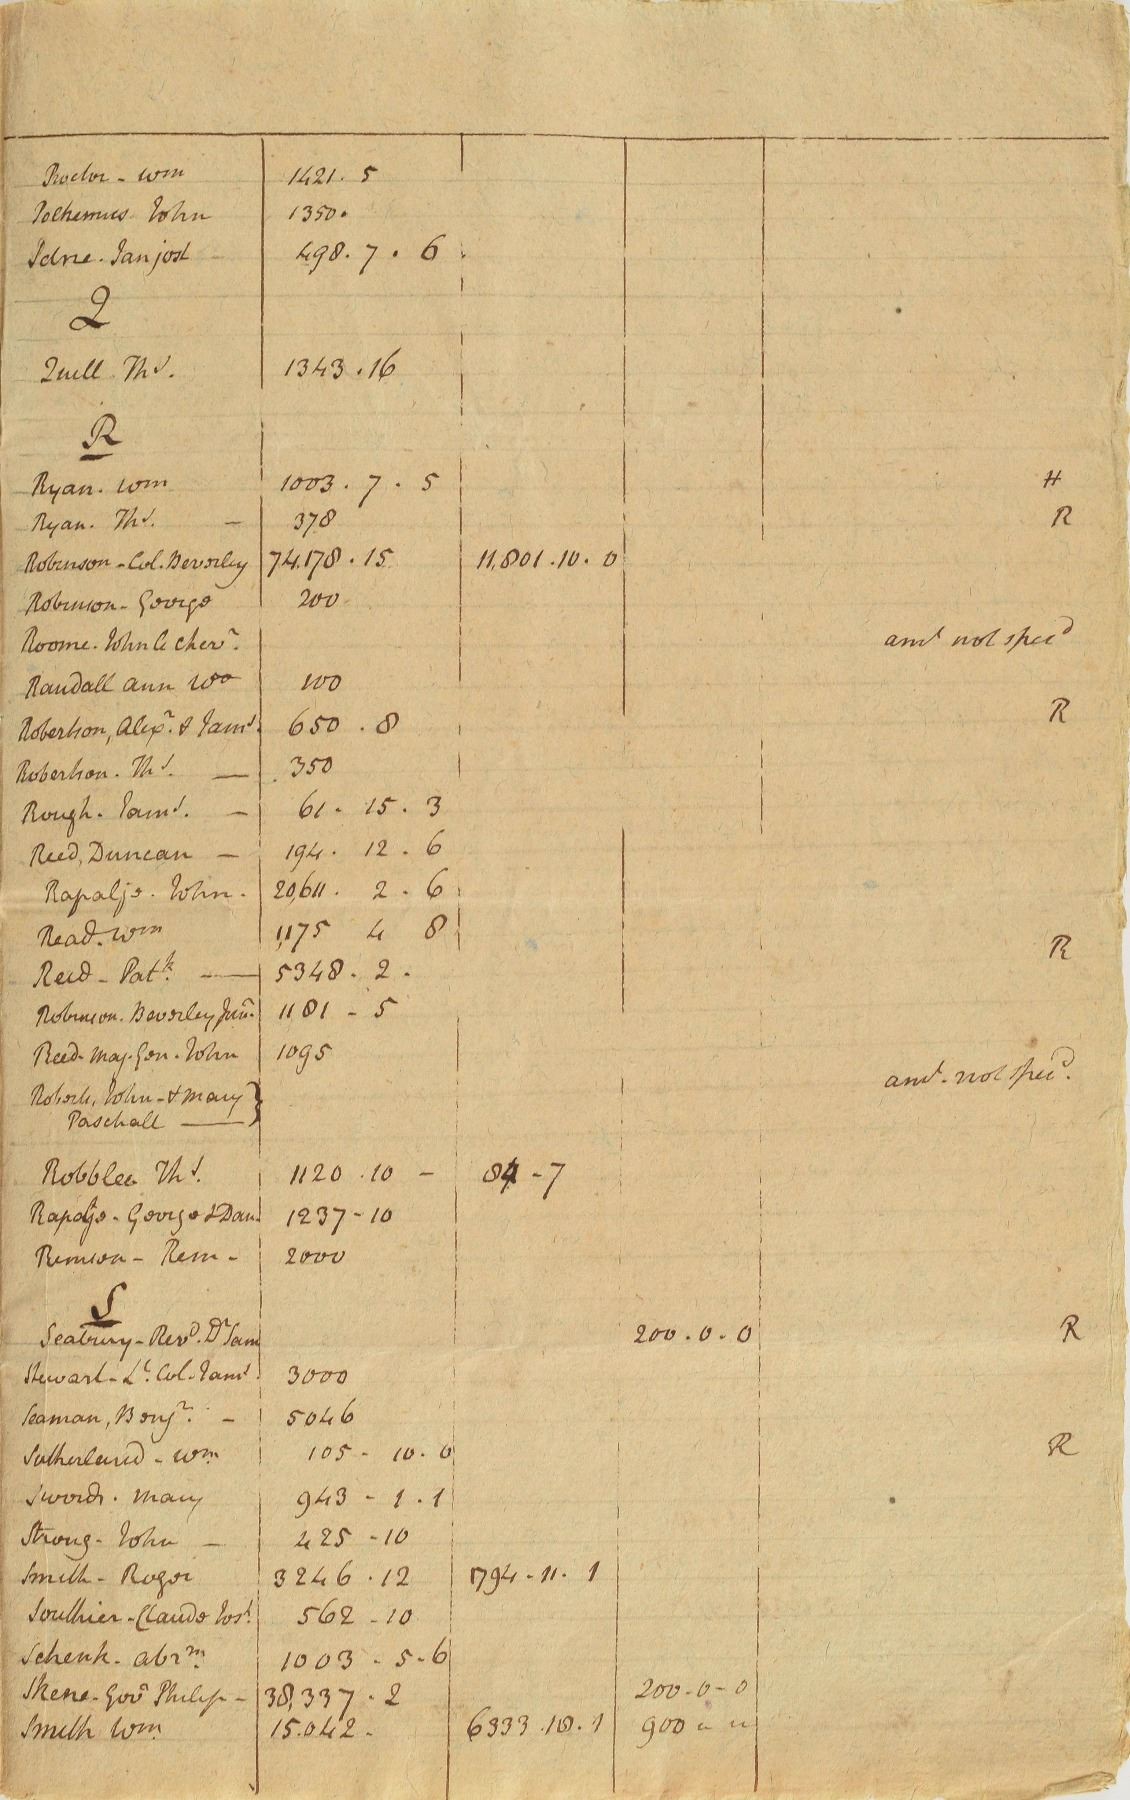 Proctor - Wm 1421 . 5
Polhemus John 1350 .
Janjost 498 . 7 . 6
Q
Quill Ths. 1343 . 16
R
Ryan. Wm 1003 . 7 . 5 H
Ryan. Ths. - 378 R
Robinson - Col. Beverley 74,178 . 15 11,801 . 10 . 0
Robinson - George 200
Roome. John Le Chevr. amt not specd
Randall Ann Wo 100
Robertson, Alexr. & Jams. 650 . 8 R
Robertson. Ths. — 350
Rough. Jams. - 61 . 15 . 3
Reed, Duncan - 194 . 12 . 6
Rapalje. John. 20,611 . 2 . 6
Read. Wm 1,175 4 8
Reid - Patk. — 5348 . 2 . R
Robinson. Beverley Junr. 1181 - 5
Reed. Maj. Gen. John 1095
Roberts, John - & Mary } amt. not specd.
Paschall —
Robblee Ths. 1120 . 10 - 84 - 7
Rapalje - George & Dan 1237 - 10
Remson - Rem - 2000
S
Seabury - Revd. Dr Sam 200 . 0 . 0 R
Stewart - Lt. Col. Jams. 3000
Seaman, Benjn. - 5046
Sutherland - Wm 105 - 10 . 0 R
Swords. Mary 943 - 1 . 1
Strong - John - 425 - 10
Smith - Roger 3246 . 12 1794 - 11 . 1
Southier - Claude Jos. 562 - 10
Schenk - Abrm. 1003 - 5 - 6
Skene - Govr Philip - 38,337 . 2 200 - 0 - 0
Smith Wm 15.042 - 6333 . 18 . 1 900 " "